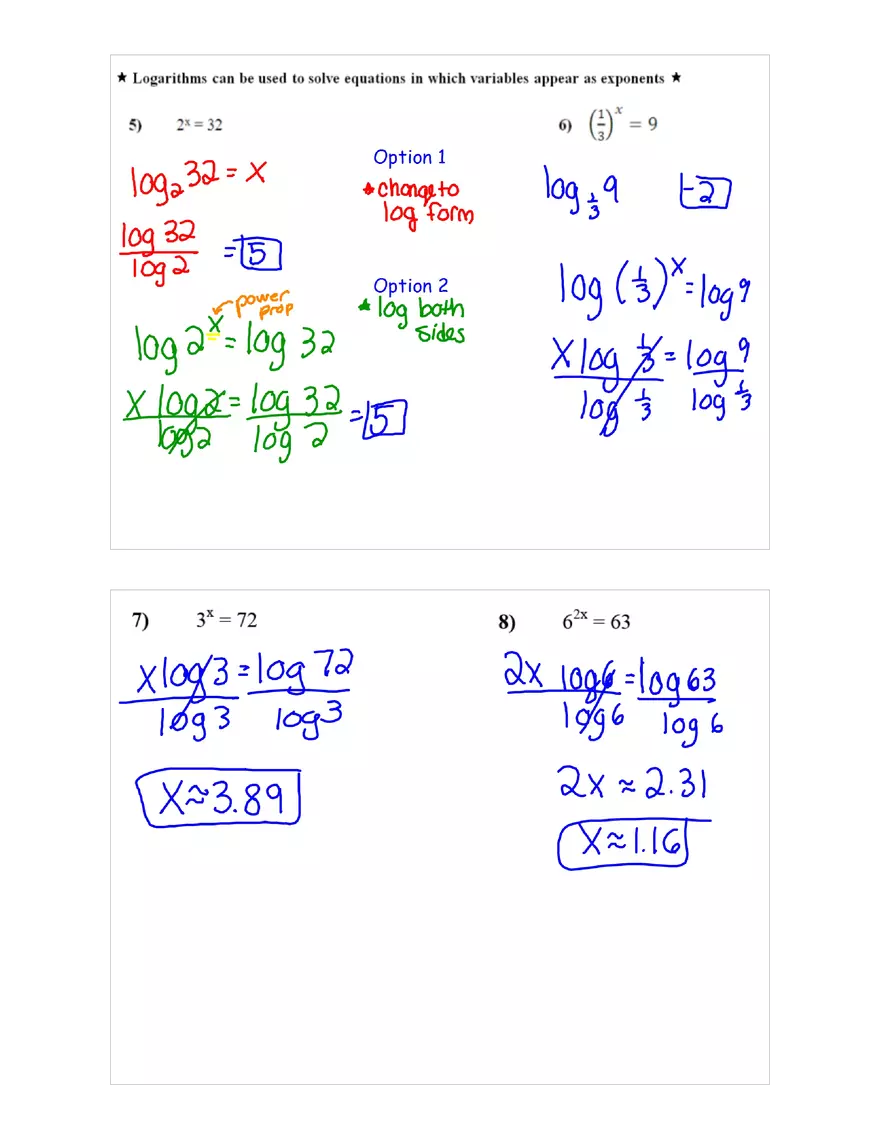 ★ Logarithms can be used to solve equations in which variables appear as exponents ★
5) 2ˣ = 32
log₂ 32 = x
log 32 / log 2 = 5
Option 1
* change to
log form
Option 2
* log both
sides
power
prop
log 2ˣ = log 32
x log 2 / log 2 = log 32 / log 2 = 5
6) (1/3)ˣ = 9
log_{1/3} 9 -2
log (1/3)ˣ = log 9
x log 1/3 / log 1/3 = log 9 / log 1/3
7) 3ˣ = 72
x log 3 / log 3 = log 72 / log 3
x ≈ 3.89
8) 6²ˣ = 63
2x log 6 / log 6 = log 63 / log 6
2x ≈ 2.31
x ≈ 1.16